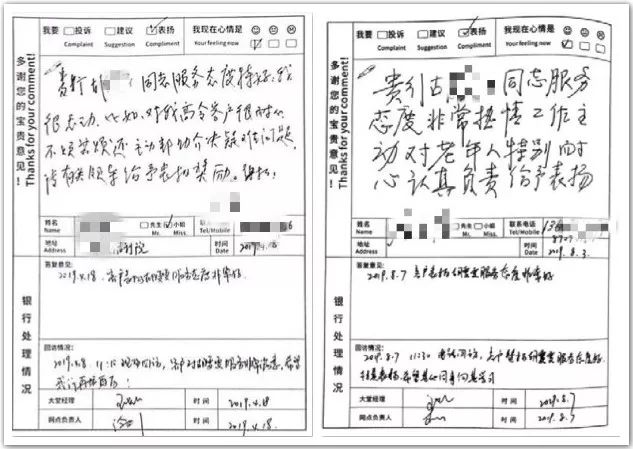 我要 □投诉 □建议 ☑表扬 我现在心情是
Complaint Suggestion Compliment Your feeling now
多谢您的宝贵意见!
Thanks for your comment!
贵行 同志服务态度特好,我
很感动。比如,对我高令客户很耐心
不烦其烦还主动帮助解决疑难问题,
请有关领导给予表扬奖励。谢谢!
姓名 □先生 ☑小姐
Name Mr. Miss. Tel/Mobile
地址 时间
Address Date 2019.4.18
答复意见:
2019.4.18. 客户表扬 服务态度非常好
银行处理情况
回访情况:
2019.4.18 11:10 现场回访,客户对 服务非常满意,希望
我行再接再厉!
大堂经理 时间 2019.4.18
网点负责人 时间 2019.4.18.
我要 □投诉 □建议 ☑表扬 我现在心情是
Complaint Suggestion Compliment Your feeling now
多谢您的宝贵意见!
Thanks for your comment!
贵行古 同志服务
态度非常热情工作主
动对老年人特别耐
心认真负责给予表扬
姓名 □先生 □小姐 联系电话
Name Mr. Miss. Tel/Mobile
地址 时间
Address Date 2019.8.3.
答复意见:
2019.8.7 客户表扬 服务态度非常好
银行处理情况
回访情况:
2019.8.7 11:30 电话回访,客户赞扬 服务态度好
特意表扬,希望其他同事向其学习
大堂经理 时间 2019.8.7
网点负责人 时间 2019.8.7